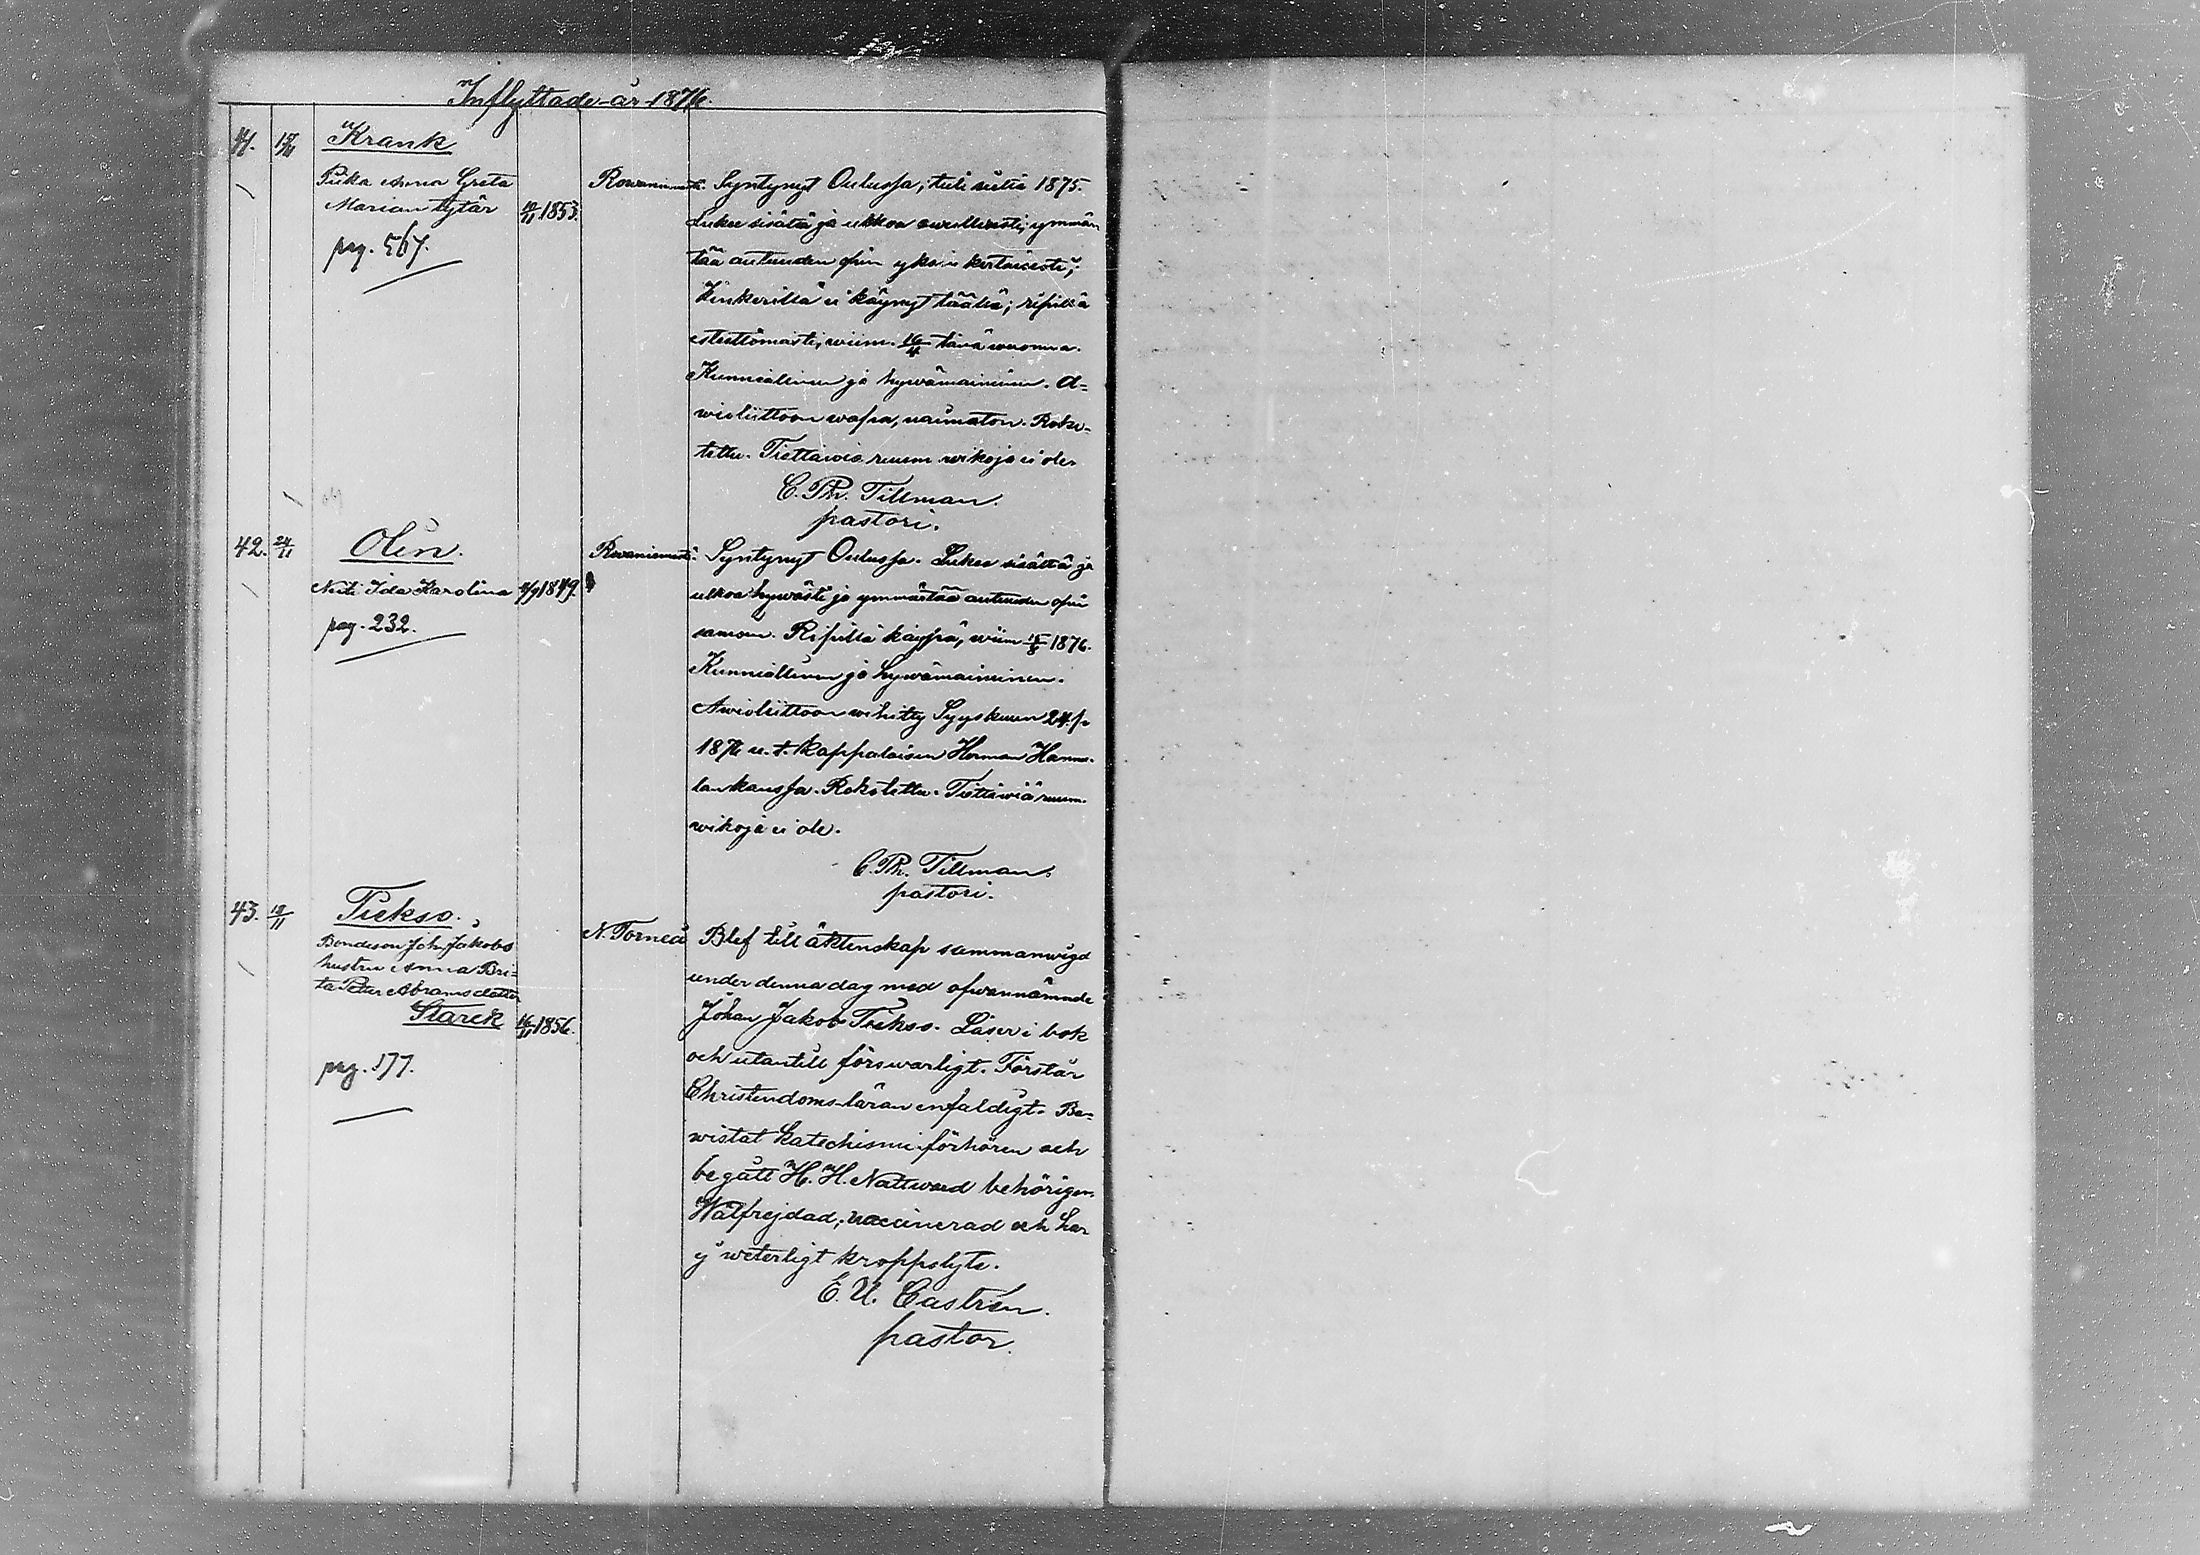 Inflyttade år 1876.
41. Krank
Piika Anna Greta
Marian tytär 1853.
pag. 567.
Rovaniemeltä. Syntynyt Oulussa; tuli sieltä 1875.
Lukee sisältä ja ulkoa auttavasti; ymmär
tää autuuden opin yksinkertaisesti;
Kinkerillä ei käynyt täällä; ripillä
esteettömästi, wiim. tänä wuonna.
Kunniallinen ja hywämaineinen. A=
wioliittoon wapaa, naimaton. Roko=
tettu. Tiettäwiä ruum. wikoja ei ole.
C. Th. Tillman.
pastori.
42. 24/11 Olin.
Neiti Ida Karolina 1849.
pag. 232.
Rovaniemeltä. Syntynyt Oulussa. Lukee sisältä ja
ulkoa hywästi ja ymmärtää autuuden opin
samoin. Ripillä käypä, wiim 1876.
Kunniallinen ja hywämaineinen.
Awioliittoon wihitty Syyskuun 24. p.
1876 u. t. kappalaisen Herman
kanssa. Rokotettu. Tiettäwiä ruum.
wikoja ei ole.
C. Th. Tillman.
pastori.
43. Piekso.
Bondeson Joh. Jakobs
hustru Anna Bri=
ta Petter Abramsdotter
Starck 1856.
pag. 177.
N. Torneå Blef till äktenskap sammanwigd
under denna dag med ofwannämnde
Johan Jakob Piekso. Läser i bok
och utantill förswarligt. Förstår
Christendoms-läran enfaldigt. Be=
wistat katechismi förhören och
begått H. H. Nattward behörigen.
Wälfrejdad, vaccinerad och har
ej weterligt kroppslyte.
E. U. Castrén.
pastor.